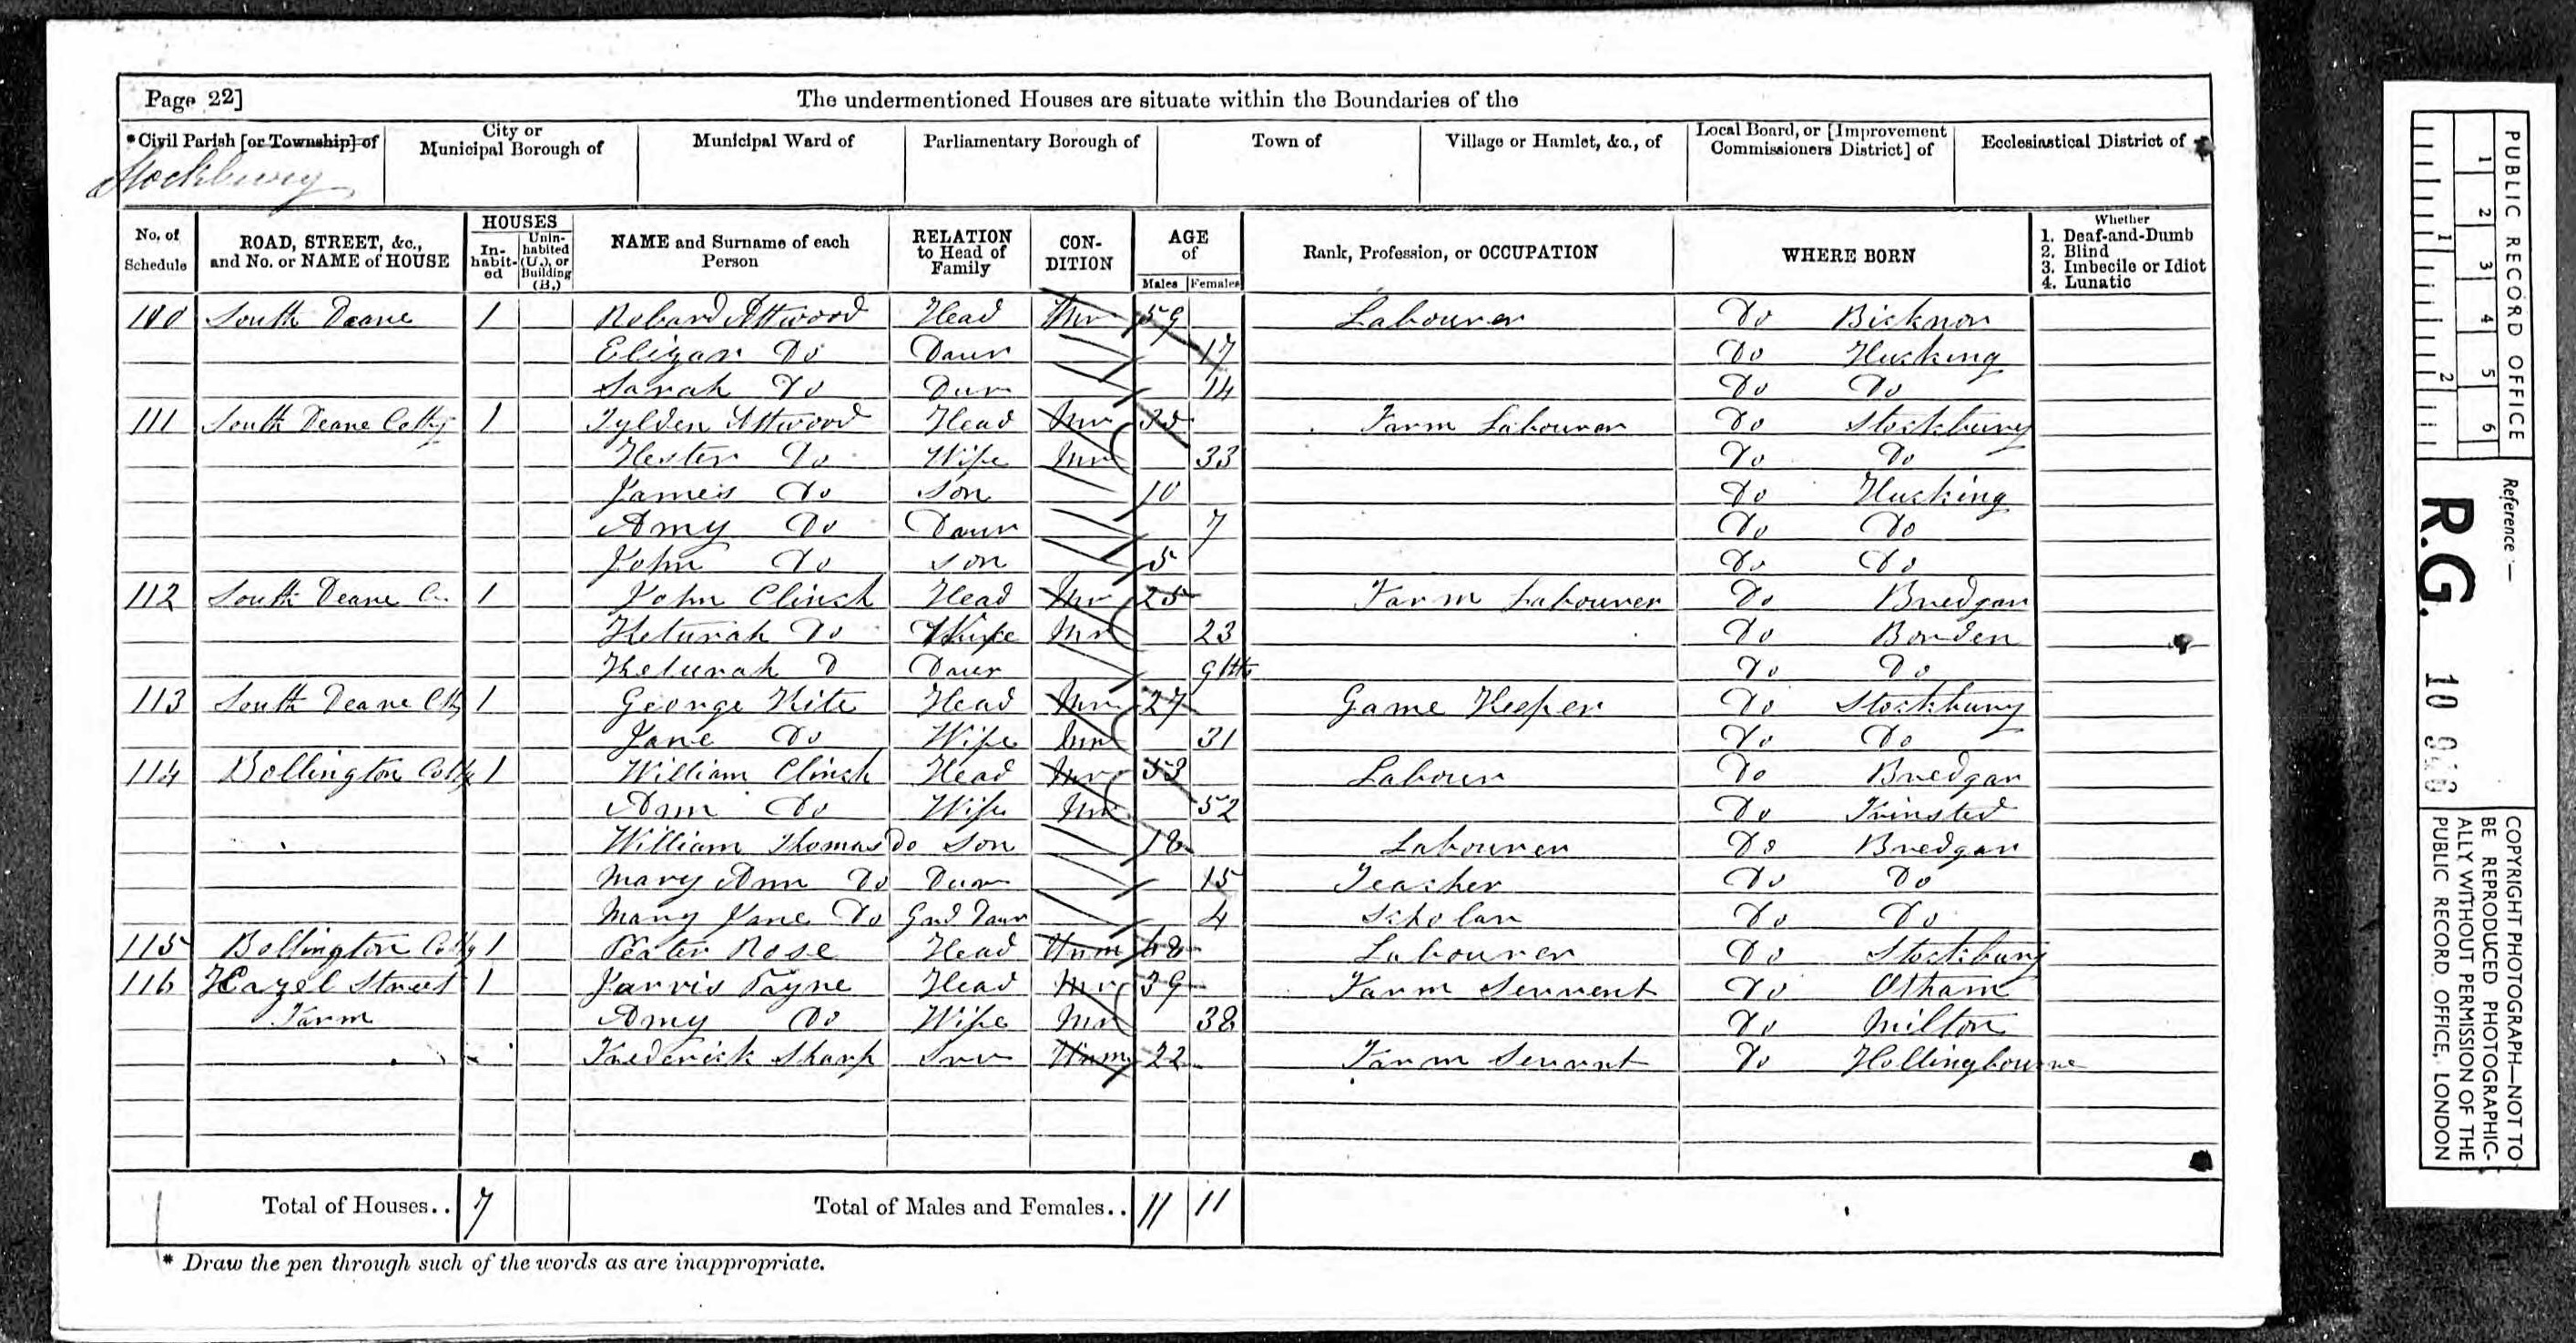 Page 22]
The undermentioned Houses are situate within the Boundaries of the
*Civil Parish [or Township] of
City or Municipal Borough of
Municipal Ward of
Parliamentary Borough of
Town of
Village or Hamlet, &c., of
Local Board, or [Improvement Commissioners District] of
Ecclesiastical District of
Stockbury
No. of Schedule
ROAD, STREET, &c., and No. or NAME of HOUSE
HOUSES
In-habit-ed
Unin-habited (U.), or Building (B.)
NAME and Surname of each Person
RELATION to Head of Family
CON-DITION
AGE of
Males
Females
Rank, Profession, or OCCUPATION
WHERE BORN
Whether
1. Deaf-and-Dumb
2. Blind
3. Imbecile or Idiot
4. Lunatic
110 South Deane 1 Robard Attwood Head Mr 59 Labourer Do Bicknor
Elizar Do Daur 17 Do Hucking
Sarah Do Dur 14 Do Do
111 South Deane Cottg 1 Tylden Attwood Head Mr 35 Farm Labourer Do Stockbury
Hester Do Wife Mr 33 Do Do
James Do Son 10 Do Hucking
Amy Do Daur 7 Do Do
John Do Son 5 Do Do
112 South Deane C 1 John Clinch Head Mr 25 Farm Labourer Do Bredgar
Keturah Do Wife Mr 23 Do Borden
Keturah D Daur 9 Mts Do Do
113 South Deane Ctg 1 George Kite Head Mr 27 Game Keeper Do Stockbury
Jane Do Wife Mr 31 Do Do
114 Bollington Cottg 1 William Clinch Head Mr 53 Labour Do Bredgar
Ann Do Wife Mr 52 Do Frinsted
William Thomas Do Son 18 Labourer Do Bredgar
Mary Ann Do Dur 15 Teacher Do Do
Mary Jane Do Gnd Daur 4 Scholar Do Do
115 Bollington Cottg 1 Peater Rose Head Unm 48 Labourer Do Stockbury
116 Hazel Street 1 Jarvis Payne Head Mr 39 Farm Servent Do Otham
Farm Amy Do Wife Mr 38 Do Milton
Frederick Sharp Srv Unm 22 Farm Servant Do Hollingbourne
Total of Houses.. 7
Total of Males and Females.. 11 11
* Draw the pen through such of the words as are inappropriate.
PUBLIC RECORD OFFICE
1 2 3 4 5 6
1 2
Reference :—
R.G. 10
COPYRIGHT PHOTOGRAPH—NOT TO
BE REPRODUCED PHOTOGRAPHIC-
ALLY WITHOUT PERMISSION OF THE
PUBLIC RECORD OFFICE, LONDON